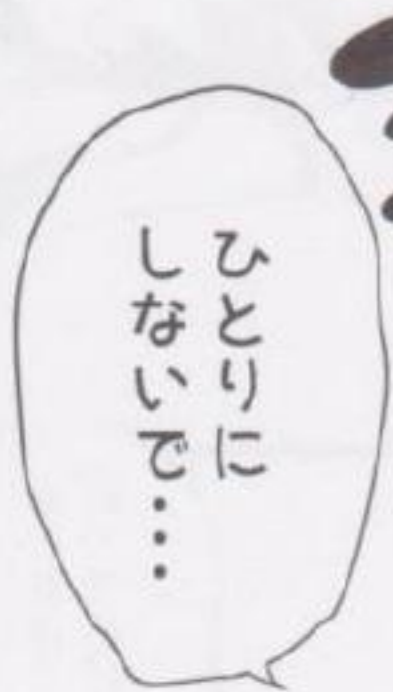 ひとりに
しないで・・・